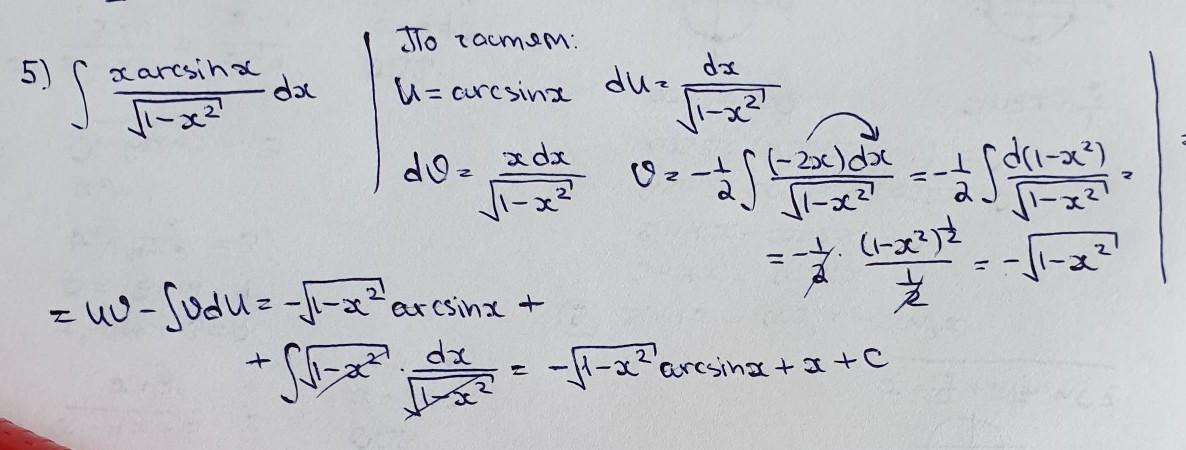 5) ∫ x arcsin x / √(1-x²) dx
По частям:
u = arcsin x   du = dx / √(1-x²)
dv = x dx / √(1-x²)   v = -1/2 ∫ (-2x)dx / √(1-x²) = -1/2 ∫ d(1-x²) / √(1-x²) =
= -1/2 · (1-x²)^(1/2) / (1/2) = -√(1-x²)
= uv - ∫vdu = -√(1-x²) arcsin x +
+ ∫√(1-x²) · dx / √(1-x²) = -√(1-x²) arcsin x + x + C